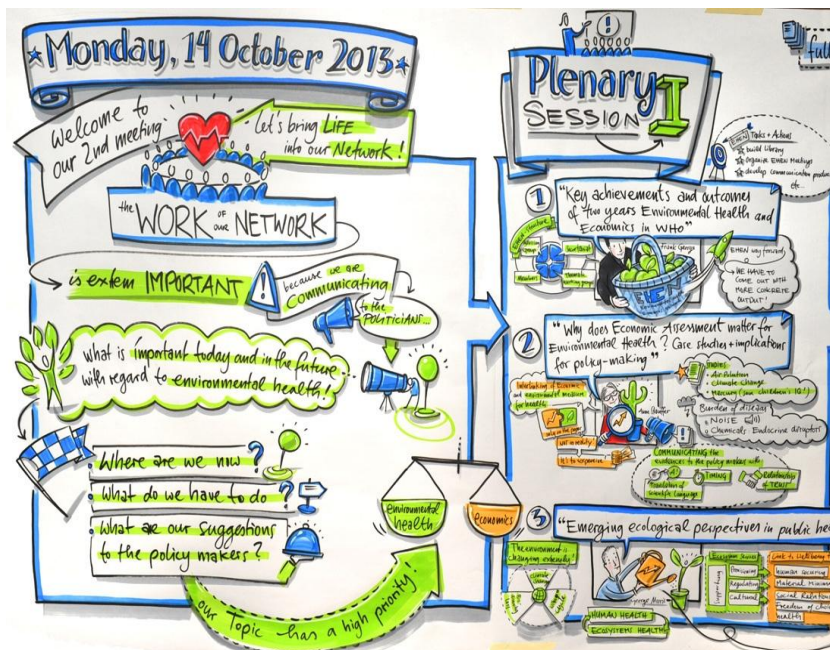 Monday, 14 October 2013
Welcome to
our 2nd meeting
Let's bring LIFE
into our Network!
the WORK of our NETWORK
is extem IMPORTANT
because we are
Communicating
to the
POLITICIANS...
What is important today and in the future
with regard to environmental health!
Where are we now?
What do we have to do?
What are our suggestions
to the policy makers?
environmental
health
economics
our Topic has a high priority!
Plenary
SESSION I
full
EHEN Topics + Actions
build Library
Organize EHEN Meetings
develop communication
etc...
1
"Key achievements and outcomes
of two years Environmental Health and
Economics in WHO"
members
EHEN
EHEN way forward
WE HAVE TO
COME OUT WITH
MORE CONCRETE
OUTPUT!
2
"Why does Economic Assessment matter for
Environmental Health? Case studies + implications
for policy-making"
Interlinking of Economic
and environmental measure
for health
not in reality
It's to expensive
Air Pollution
Climate Change
Mercury (on children's IQ!)
Burden of disease
NOISE
Chemicals Endocrine disruptors
COMMUNICATING the
evidences to the policy makers with
Translation of
scientific Language
TIMING
Relationships
of TRUST
3
"Emerging ecological perspectives in public hea
The environment is
changing extremely!
George Morris
HUMAN HEALTH
ECOSYSTEM HEALTH
Supporting
Provisioning
Regulating
Cultural
Link to Wellbeing
Material
Social Relation
Freedom of
health